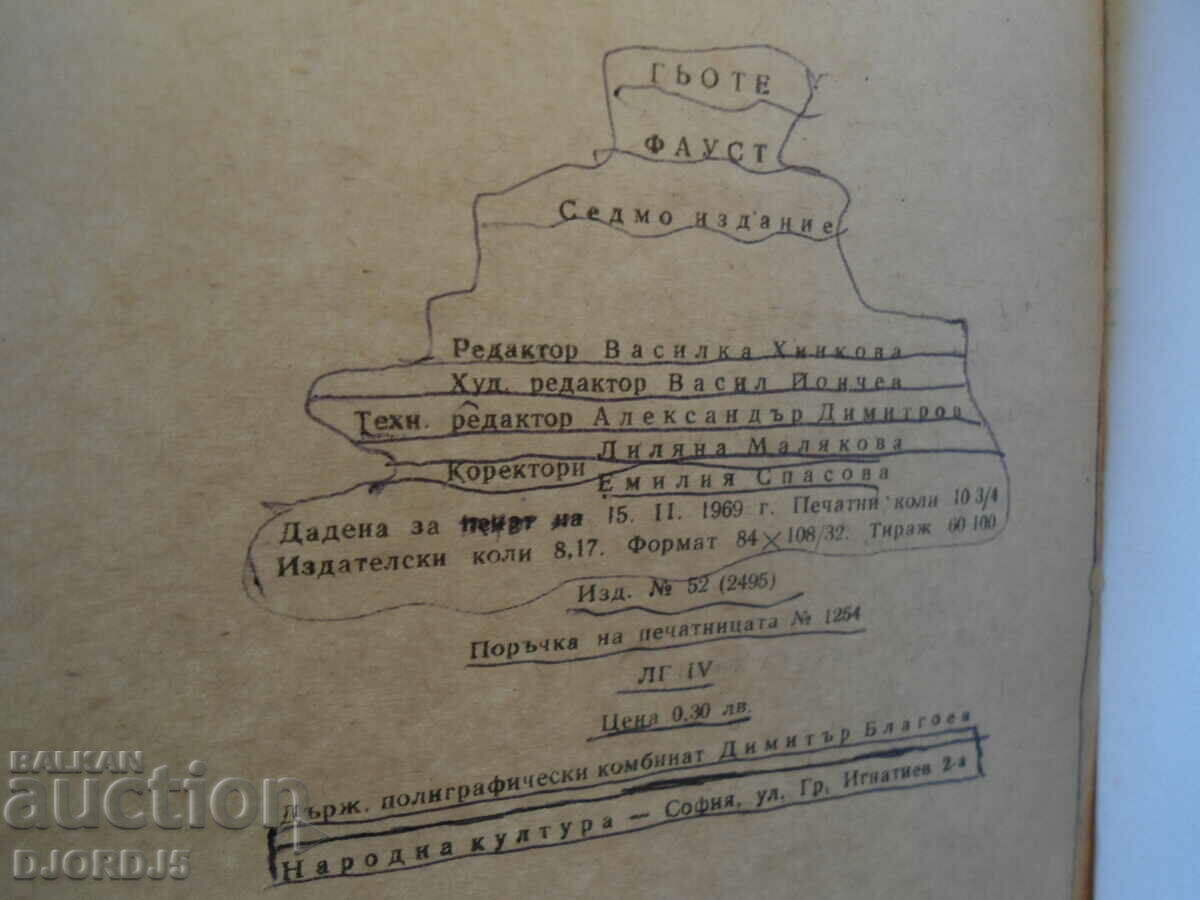 ГЬОТЕ
ФАУСТ
Седмо издание
Редактор Василка Хинкова
Худ. редактор Васил Йончев
Техн. редактор Александър Димитров
Лиляна Малякова
Коректори
Емилия Спасова
Дадена за печат на 15. II. 1969 г. Печатни коли 10 3/4
Издателски коли 8,17. Формат 84×108/32. Тираж 60 100
Изд. № 52 (2495)
Поръчка на печатницата № 1254
ЛГ IV
Цена 0,30 лв.
Държ. полиграфически комбинат Димитър Благоев
Народна култура — София, ул. Гр. Игнатиев 2-а
BALKAN
auction
DJORDJ5